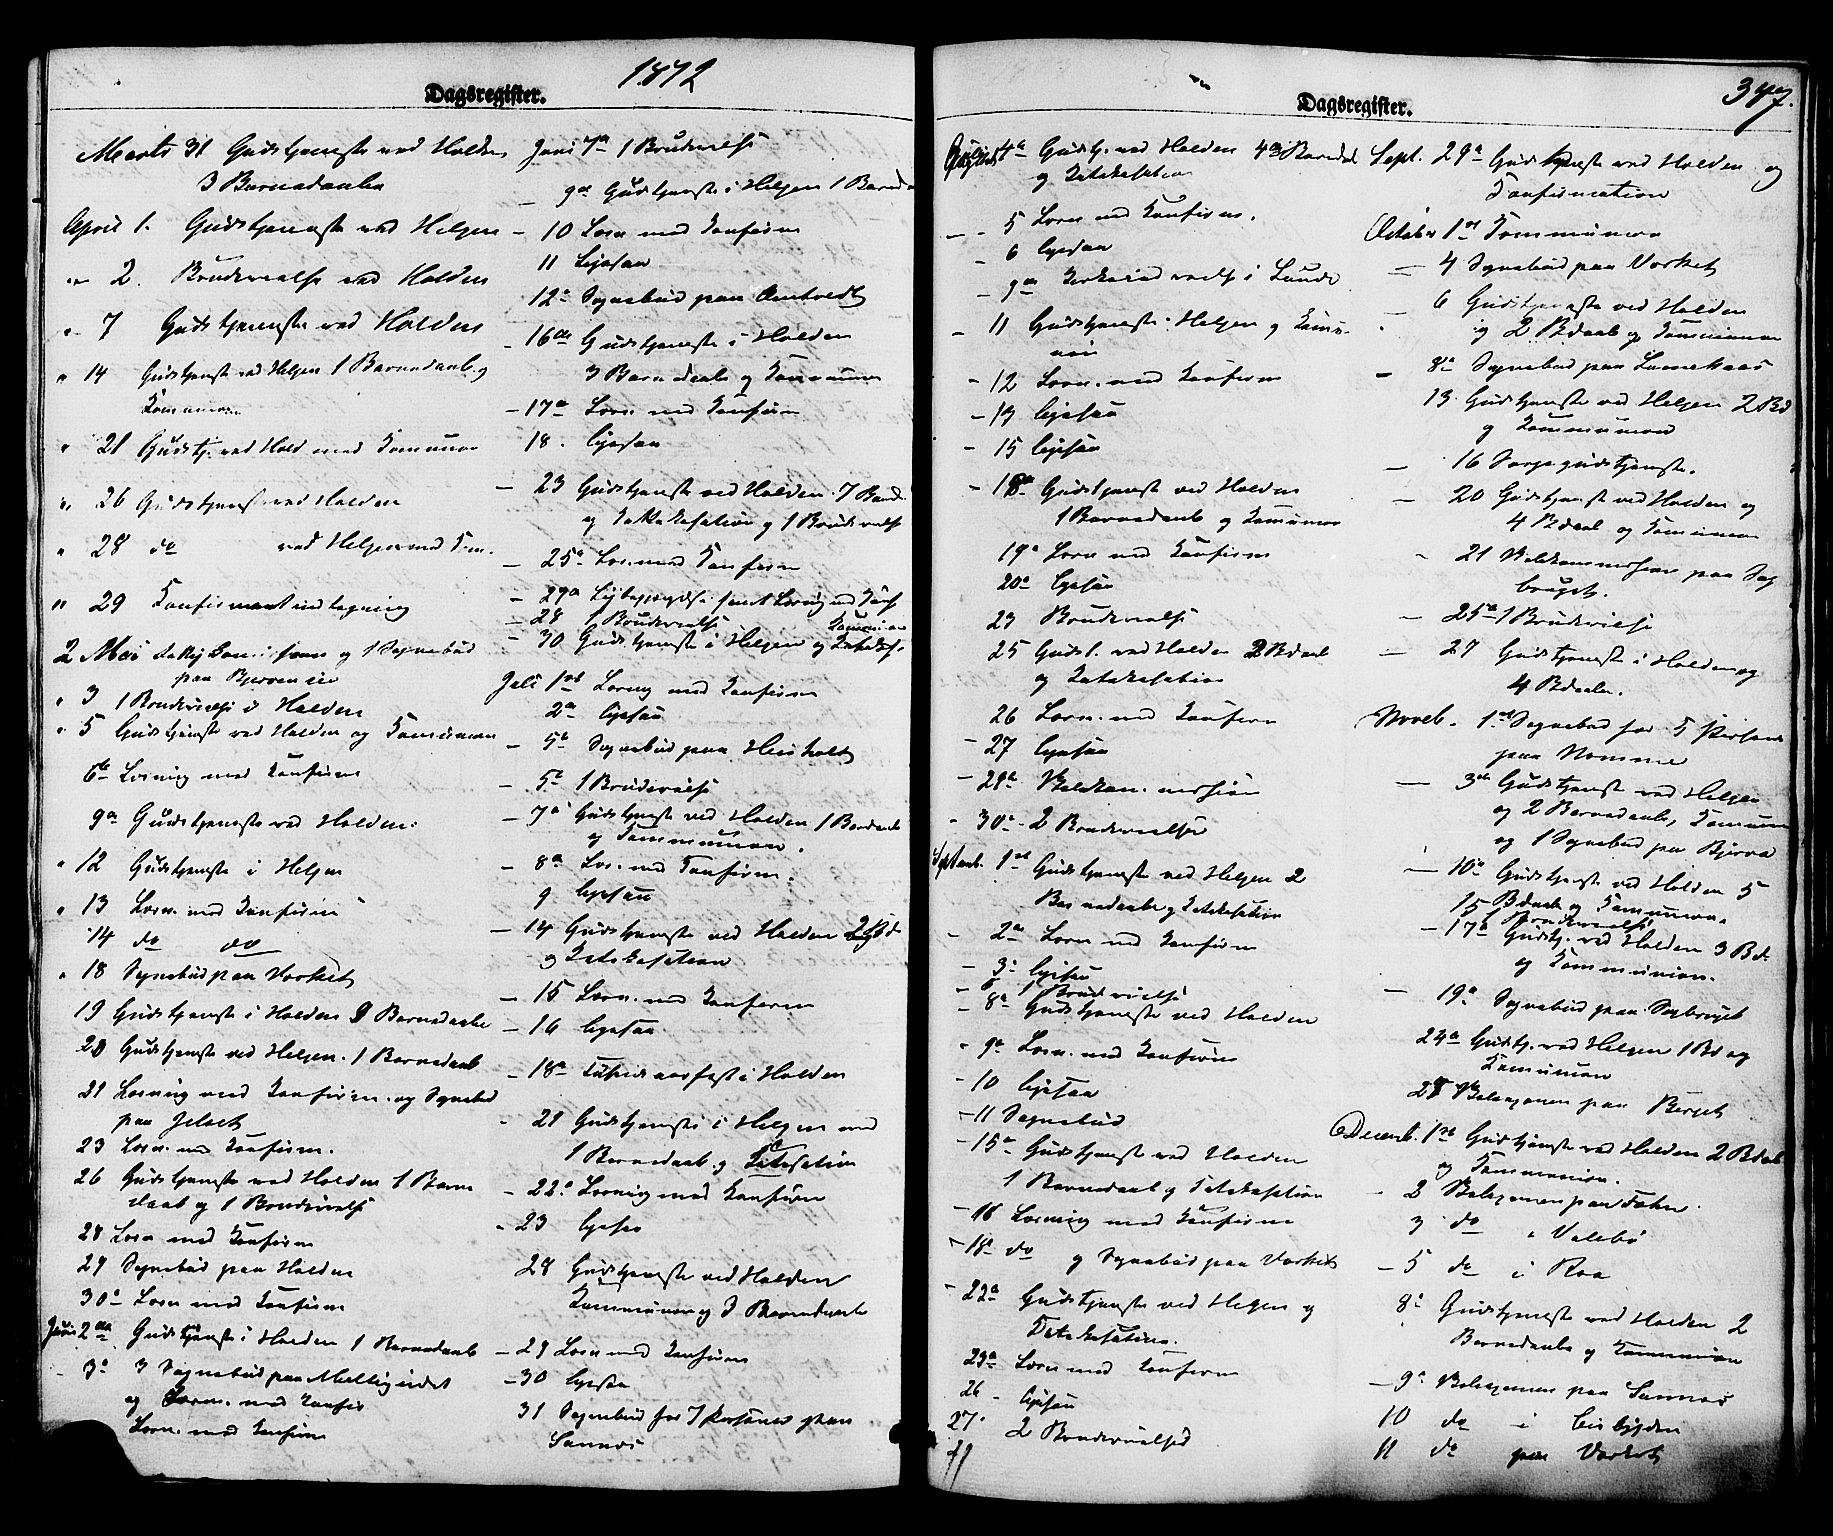 1872
Dagsregister.
Marts 31 Gudstjeneste ved Holden
3 Barnedaabe
April 1. Gudstjeneste ved Helgen
" 2. Brudevielse ved Holden
" 7 Gudstjeneste ved Holden
" 14 Gudstjeneste ved Helgen 1 Barnedaab og
Kommunion
" 21 Gudstj. ved Hold med Komunion
" 26 Gudstjeneste ved Holden
" 28 do ved Helgen med Kom.
" 29
2 Mai og 1 Sognebud
paa
" 3 1 Brudevielse i Holden
" 5 Gudstjeneste ved Holden og Komunion
6te Læsning med Konfirm
9de Gudstjeneste ved Holden.
" 12 Gudstjeneste i Helgen
" 13 Læsn. med Konfirm
14 do do
" 18 Sognebud paa Værket
19 Gudstjeneste i Holden 9 Barnedaabe
20 Gudstjeneste ved Helgen. 1 Barnedaab
21 Læsning med Konfirm. og Sognebud
paa
23 Læsn. med Konfirm.
26 Gudstjeneste ved Holden 1 Barne
daab og 1 Brudevielse
28 Læsn med Konfirm
29 Sognebud paa Holden
30te Læsn med Konfirm
Juni 2den Gudstjeneste i Holden 1 Barnedaab
3die 3 Sognebud paa
og Læsn. med Konfir
Læsn. med Konfirm
Juni 7de 1 Brudevielse
9de Gudstjeneste i Helgen 1 Barneda
10 Læsn med Konfirm
11 Ligesaa
12te Sognebud paa
16de Gudstjeneste i Holden
3 Barnedaabe og Kommunion
17de Læsn med Konfirm
18. Ligesaa
23 Gudstjeneste ved Holden. 7 Barned.
og Katekesation og 1 Brudevielse
25de Læsn. med Konfirm
29de
28 1 Brudevielse Kommunion
30 Gudstjeneste i Helgen og Katekes.
Juli 1ste Læsning med Konfirm
2den Ligesaa
5te Sognebud paa
5te 1 Brudevielse
7de Gudstjeneste ved Holden 1 Bardaab
og Kommunion.
8de Læs. med Konfirm.
9 Ligesaa
14 Gudstjeneste ved Holden
og Katekesation
15 Læsn. med Konfirm
16 Ligesaa
18de i Holden
21 Gudstjeneste i Helgen med
1 Barnedaab og
22de Læsning med Konfirm
23 Ligesaa
28 Gudstjeneste ved Holden
Kommunion og 3 Barnedaabe
29 Læsn med Konfirm
30 Ligesaa
31 Sognebud for 7 Personer paa
Dagsregister.
347.
August 4de Gudstj. ved Holden Barnedaab
og Katekesation
5 Læsn med Konfirm.
6 Ligesaa
9de i Lunde
11 Gudstjeneste. Helgen og Komu-
nion
12 Læsn. med Konfirm
13 Ligesaa
15 Ligesaa
18de Gudstjeneste ved Holden
1 Barnedaab og Komunion
19de Læsn med Konfirm
20de Ligesaa
23 Brudevielse
25 Gudst. ved Holden 2 Bdaab
og Katekesation
26 Læsn. med Konfirm
27 Ligesaa
29de
30te 2 Brudevielser
Septemb. 1ste Gudstjeneste ved Helgen 2
Barnedaabe og Katekesation
2den Læsn med Konfirm
3die Ligesaa
6 1 Brudevielse
8de Gudstjeneste ved Holden
9de Læsn. med Konfirm
10 Ligesaa
11 Sognebud
15de Gudstjeneste ved Holden
1 Barnedaab og Katekesation
16 Læsning med Konfirm
18de do og Sognebud paa Værket
22de Gudstjeneste ved Helgen og
Katekesation.
23de Læsn med Konfirm
26 Ligesaa
27. 2 Brudevielser
Sept. 29de Gudstjeneste ved Holden og
Konfirmation
October 1ste Kommunion
4 Sognebud paa Værket
6 Gudstjeneste ved Holden
og 2 Bdaab og Kommunion
8de Sognebud paa
13. Gudstjeneste ved Helgen 2 Bd
og Kommunion
16 Sorgegudstjeneste.
20 Gudstjeneste ved Holden og
4 Bdaab og Kommunion
21 paa Sag
bruget.
25de 1 Brudevielse
27 Gudstjeneste i Holden og
4 Bdaabe.
Noveb. 1ste Sognebud for 5 Personer
paa Nomme
3die Gudstjeneste ved Helgen
og 2 Barnedaabe, Komunion
og 1 Sognebud paa
10de Gudstjeneste ved Holden 5
Bdaab og Kommunion.
15 1 Brudevielse
17de Gudstj. ved Holden 3 Bd.
og Kommunion.
19de Sognebud paa Sagbruget
24de Gudstj. ved Helgen 1 Bd og
Komunion
28 paa Berget
Decemb. 1ste Gudstjeneste ved Holden 2 Bdaab
og Kommunion.
2
3 do i Valebø
5 do i Roa
8de Gudstjeneste ved Holden 2
Barnedaabe og Kommunion
9de paa
10 do i
11 do paa Værket